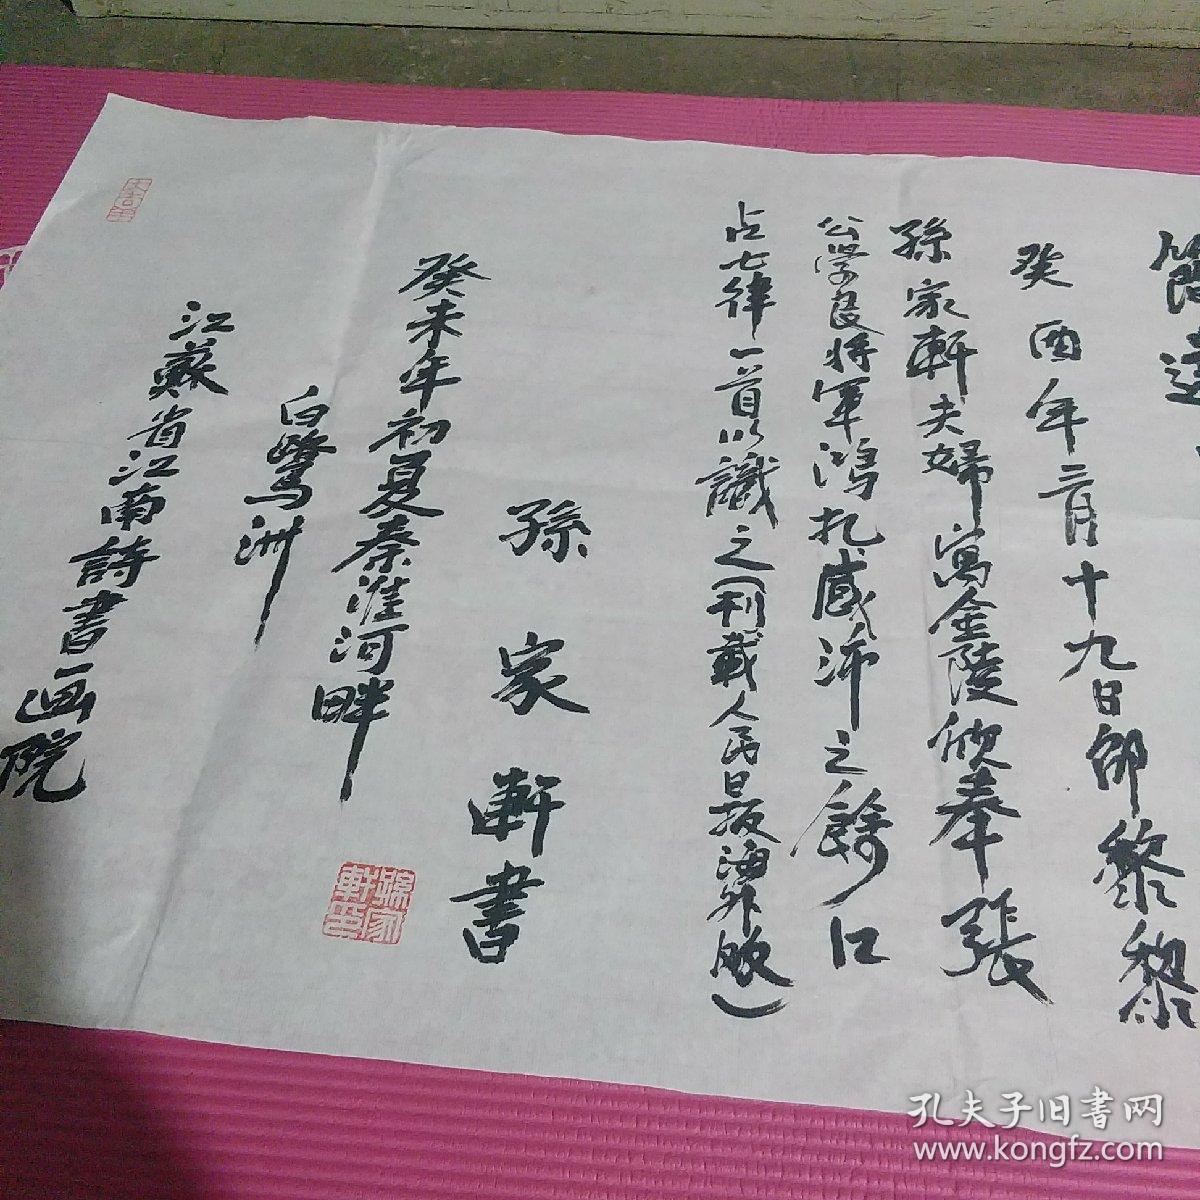 癸酉年二月十九日郎黎黎
孫家軒夫婦寓金陵欣奉張
公學良將軍鴻札感沛之餘口
占七律一首以識之(刊載人民日报海外版)
孫家軒書
癸未年初夏秦淮河畔
白鷺洲
江蘇省江南詩書画院
孫家軒印
孔夫子旧書网
www.kongfz.com